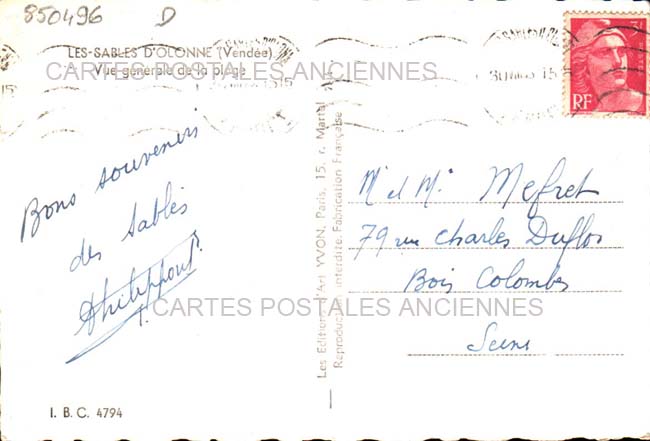 850496 D
LES-SABLES D'OLONNE (Vendée)
Vue générale de la plage
CARTES POSTALES ANCIENNES
3F
RF
15
Bons souvenirs
des Sables
Les Editions d'Art YVON, Paris, 15, r. Martel
Reproduction interdite. Fabrication Française
Mr et Me Mefret
79 rue Charles Duflos
Bois Colombes
Seine
CARTES POSTALES ANCIENNES
I. B. C. 4794